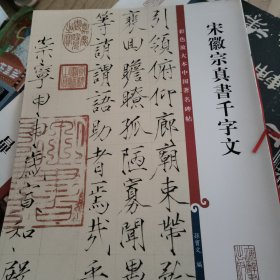 彩色放大本中國著名碑帖
宋徽宗真書千字文
孫寶文 編
引領俯仰廊廟束帶
瞻眺孤陋寡聞愚
等誚謂語助者焉哉乎
崇寧甲申歲宣和